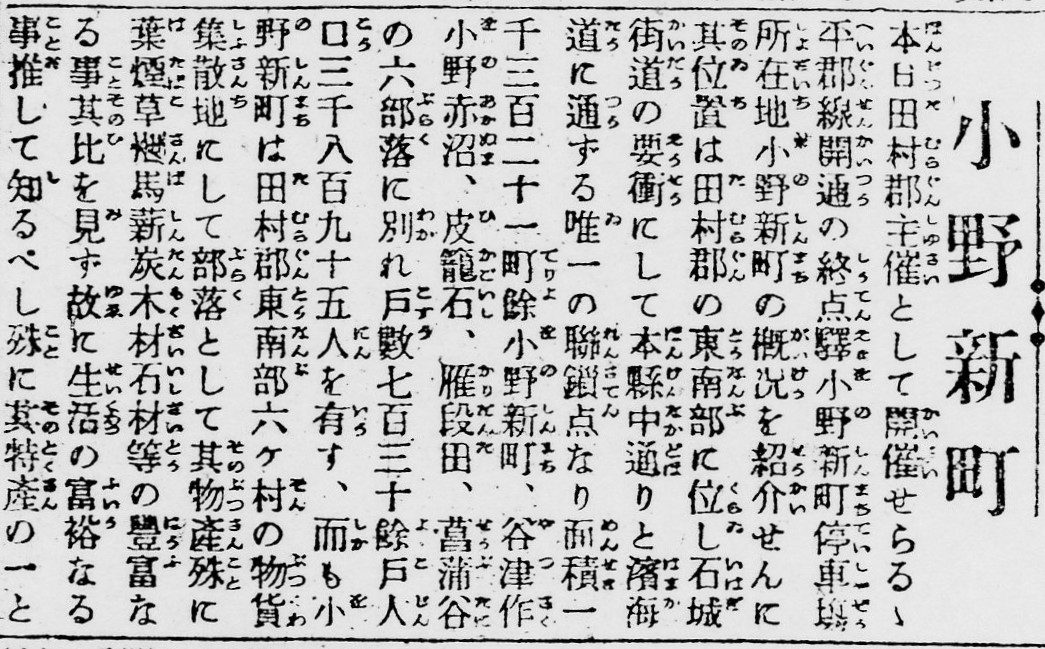 小野新町
本日田村郡主催として開催せらるゝ
平郡線開通の終点驛小野新町停車塲
所在地小野新町の概况を紹介せんに
其位置は田村郡の東南部に位し石城
街道の要衝にして本縣中通りと濱海
道に通ずる唯一の聯鎖点なり面積一
千三百二十一町餘小野新町、谷津作
小野赤沼、皮籠石、雁段田、菖蒲谷
の六部落に別れ戸數七百三十餘戸人
口三千八百九十五人を有す、而も小
野新町は田村郡東南部六ヶ村の物貨
集散地にして部落として其物產殊に
葉煙草蠶馬薪炭木材石材等の豐富な
る事其比を見ず故に生活の富裕なる
事推して知るべし殊に其特產の一と